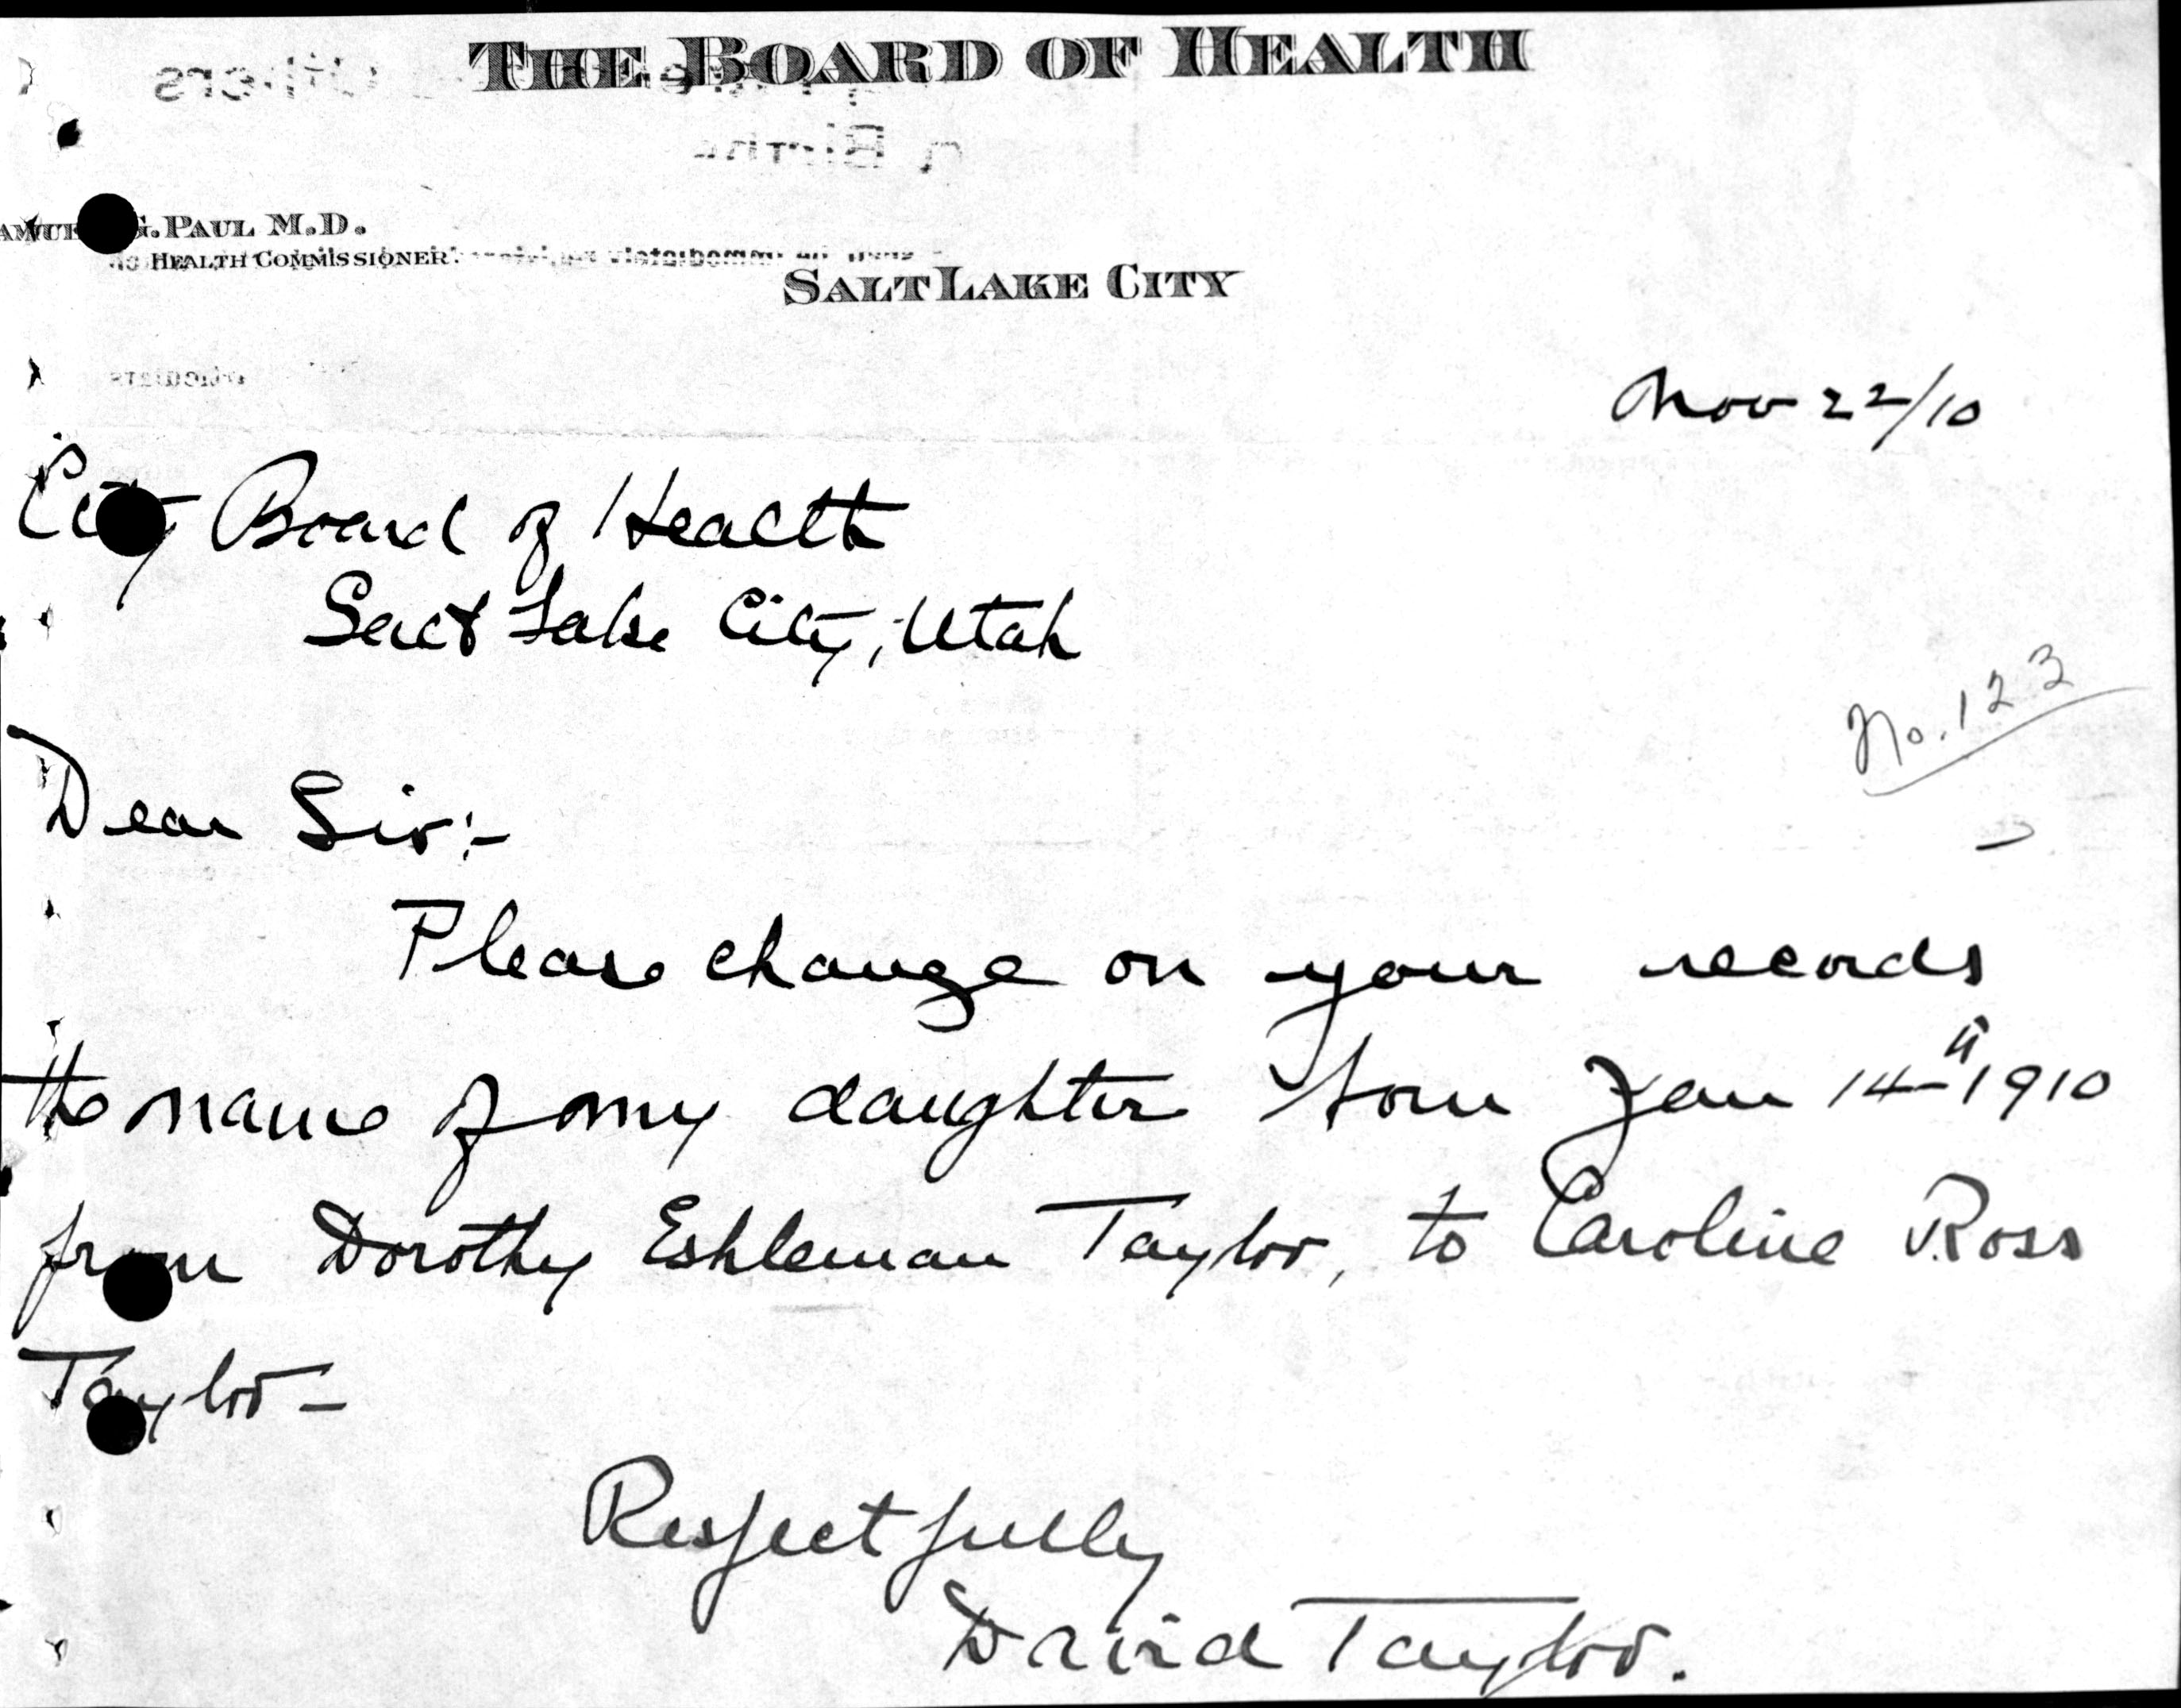 THE BOARD OF HEALTH
G. PAUL M.D.
HEALTH COMMISSIONER.
SALT LAKE CITY
Nov 22/10
City Board of Health
Salt Lake City, Utah
No. 123
Dear Sir:-
Please change on your records
the name of my daughter born Jan 14th 1910
from Dorothy Eshleman Taylor, to Caroline Ross
Taylor-
Respectfully
David Taylor.